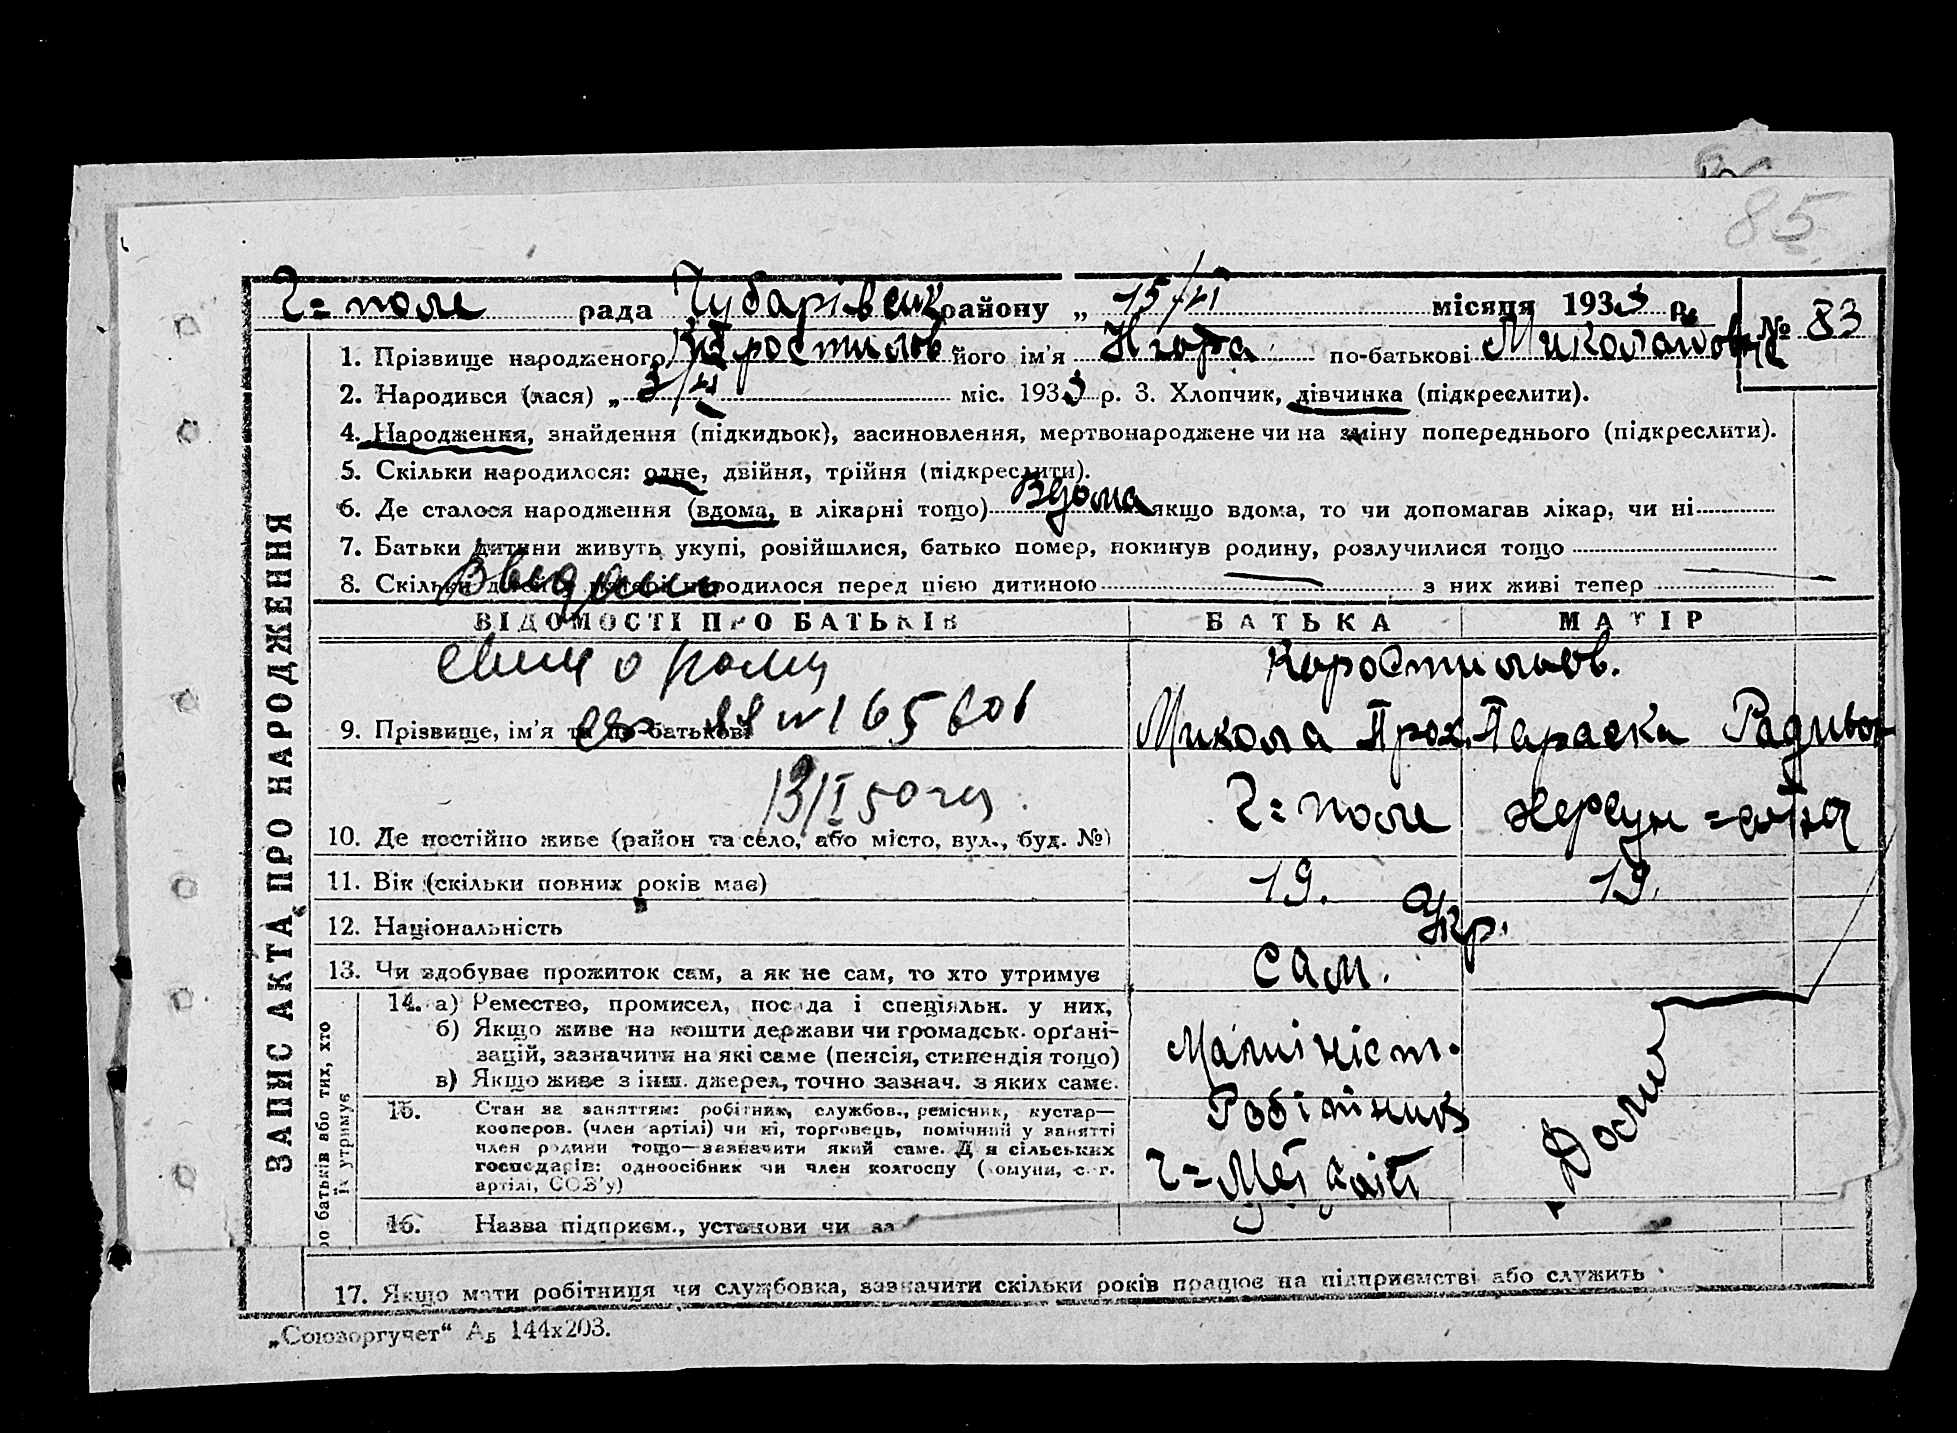 85
Г=поле рада Чубарівськ району „ 15/VI місяця 1933 р.
№ 83
1. Прізвище народженого Коростильов його ім'я по-батькові Миколаївн
2. Народився (лася) „ 3/VI міс. 1933 р. 3. Хлопчик, дівчинка (підкреслити).
4. Народження, знайдення (підкидьок), засиновлення, мертвонароджене чи на зміну попереднього (підкреслити).
5. Скільки народилося: одне, двійня, трійня (підкреслити).
6. Де сталося народження (вдома, в лікарні тощо) Вдома якщо вдома, то чи допомагав лікар, чи ні
7. Батьки дитини живуть укупі, розійшлися, батько помер, покинув родину, розлучилися тощо
8. Скільки дітей у матері народилося перед цією дитиною — з них живі тепер —
ВІДОМОСТІ ПРО БАТЬКІВ БАТЬКА МАТІР
Коростильов.
9. Прізвище, ім'я та по-батькові Микола Прох. Параска Радивон
№ 165601
13/I 50
10. Де постійно живе (район та село, або місто, вул., буд. №) Г=поле
11. Вік (скільки повних років має) 19. 19.
12. Національність Укр.
13. Чи здобуває прожиток сам, а як не сам, то хто утримує сам.
14. а) Ремество, промисел, посада і спеціяльн. у них,
б) Якщо живе на кошти держави чи громадськ. орґані-
зацій, зазначити на які саме (пенсія, стипендія тощо)
в) Якщо живе з інш. джерел, точно зазнач. з яких саме.
Машиніст.
15. Стан за заняттям: робітник, службов., ремісник, кустар—
кооперов. (член артілі) чи ні, торговець, помічний у занятті
член родини тощо—зазначити який саме. Для сільських
господарів: одноосібник чи член колгоспу (комуни, с.-г.
артілі, СОЗ'у)
Робітник
16. Назва підприєм., установи чи за
17. Якщо мати робітниця чи службовка, зазначити скільки років працює на підприємстві або служить
ЗАПИС АКТА ПРО НАРОДЖЕННЯ
ро батьків або тих, хто
їх утримує
„Союзоргучет“ А₅ 144х203.